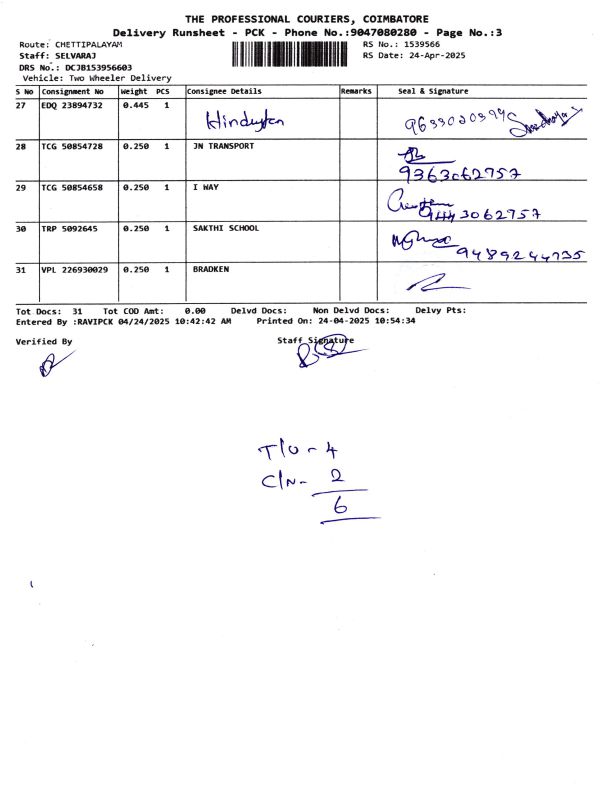 THE PROFESSIONAL COURIERS, COIMBATORE
Delivery Runsheet - PCK - Phone No.:9047080280 - Page No.:3
Route: CHETTIPALAYAM RS No.: 1539566
Staff: SELVARAJ RS Date: 24-Apr-2025
DRS No.: DCJB153956603
Vehicle: Two Wheeler Delivery
S No Consignment No Weight PCS Consignee Details Remarks Seal & Signature
27 EDQ 23894732 0.445 1 Hindustan 9633020394
28 TCG 50854728 0.250 1 JN TRANSPORT
9363062757
29 TCG 50854658 0.250 1 I WAY
9443062757
30 TRP 5092645 0.250 1 SAKTHI SCHOOL
9489244735
31 VPL 226930029 0.250 1 BRADKEN
Tot Docs: 31 Tot COD Amt: 0.00 Delvd Docs: Non Delvd Docs: Delvy Pts:
Entered By :RAVIPCK 04/24/2025 10:42:42 AM Printed On: 24-04-2025 10:54:34
Verified By Staff Signature
T/O - 4
C/N - 2
6